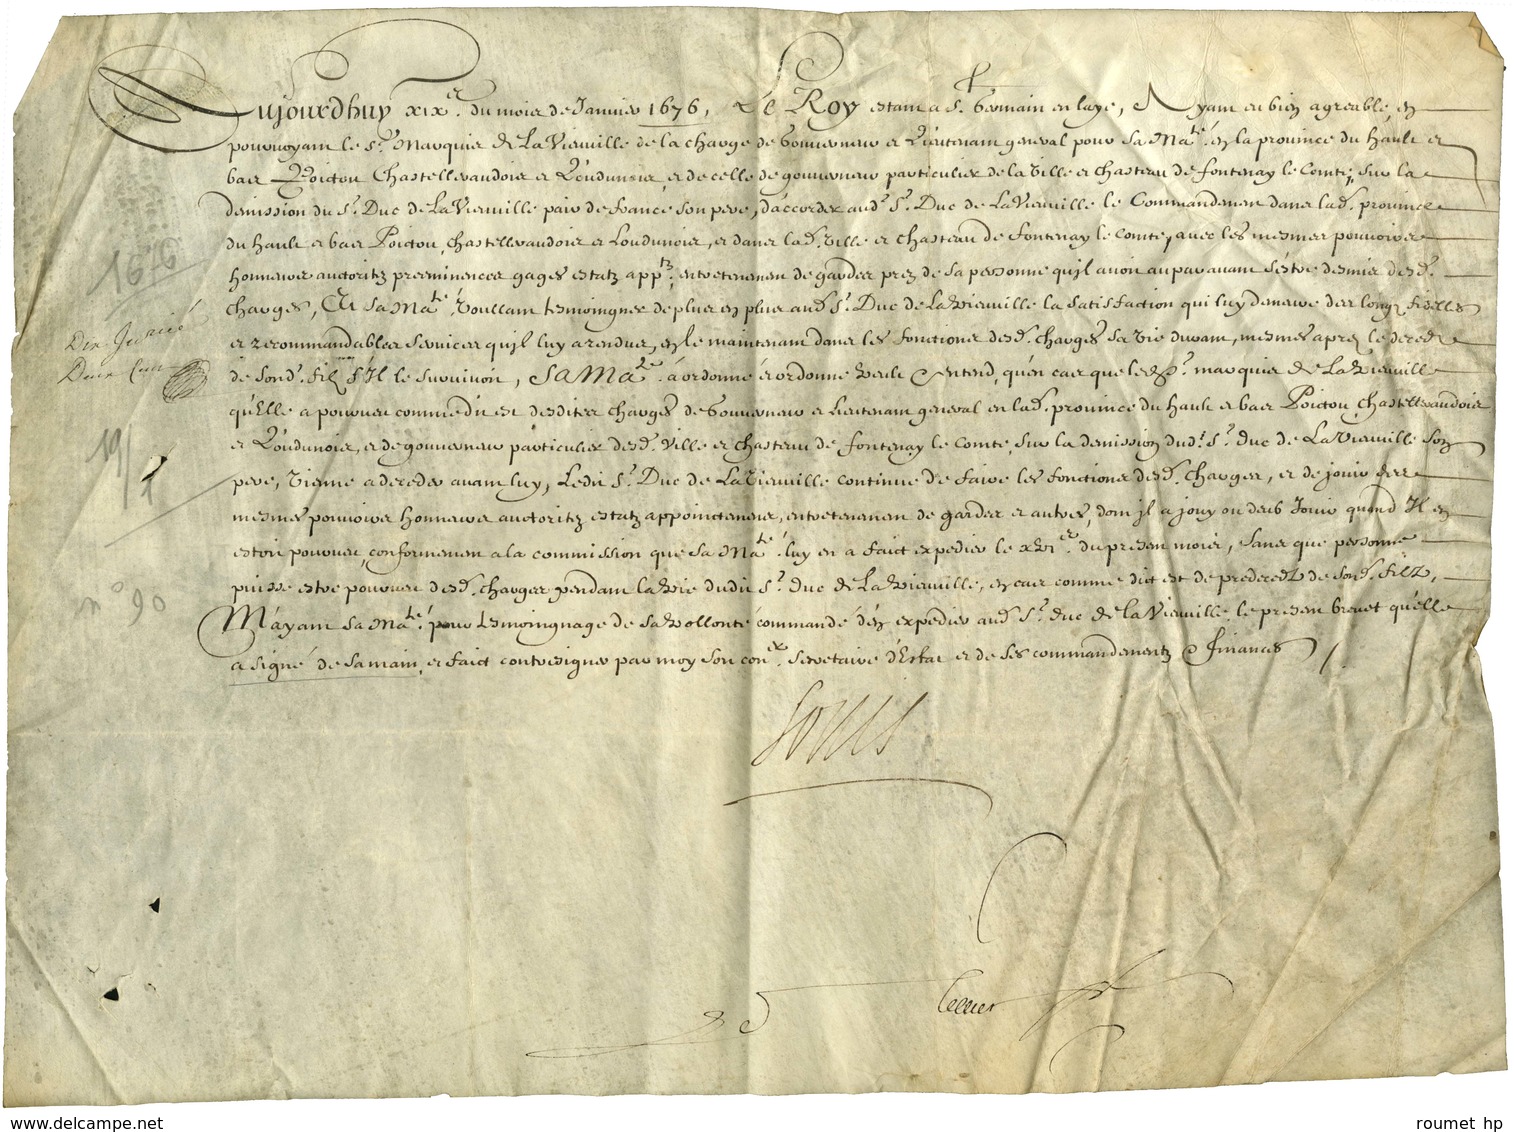 Aujourdhuy xixe. du mois de Janvier 1676, Le Roy estant a St. Germain en laye, Ayant eu bien agreable, en
pourvoyant le Sr. Marquis de La Vieuville de la charge de Gouverneur et Lieutenant general pour Sa Maté. en la province du hault et
bas Poictou Chastelleraudois et Loudunois, et de celle de gouverneur particulier de la Ville et chasteau de fontenay le Comte, sur la
demission du Sr. Duc de La Vieuville pair de france son pere, d'accorder aud. Sr. Duc de La Vieuville le Commandement dans lad. province
du hault et bas Poictou, chastelleraudois et Loudunois, et dans lad. ville et chasteau de fontenay le comte, avec les mesmes pouvoirs
honneurs auctoritez preeminences gages estatz apptz. entretenement de gardes prez de sa personne qu'jl avoit auparavant s'estre desmis desd.
charges, Et sa Maté. voullant tesmoigner de plus en plus aud. Sr. Duc de La Vieuville la satisfaction qui luy demeure des longs fidelles
et recommandables services qu'jl luy a rendus, en le maintenant dans les fonctions desd. charges sa vie durant, mesmes apres le deceds
de sond. filz s'Il le survivoit, SA MAté. a ordonné et ordonne veult et entend, qu'en cas que led. Sr. marquis de La Vieuville
qu'Elle a pourveu comme dit est desdites charges de Gouverneur et Lieutenant general en lad. province du hault et bas Poictou, chastelleraudois
et Loudunois, et de gouverneur particulier desd. Ville et chasteau de fontenay le Comte, sur la demission dud. Sr. duc de La Vieuville son
pere, vienne a deceder avant luy, Ledit Sr. Duc de La Vieuville continue de faire les fonctions desd. charges, et de jouir des
mesmes pouvoirs honneurs auctoritez estatz appointemens, entretenement de gardes et autres, dont jl a jouy ou deub Jouir quand Il en
estoit pourveu, conformement a la commission que sa Maté. luy en a faict expedier le xvie. du present mois, sans que personne
puisse estre pourveu desd. charges pendant la vie dudit Sr. duc de La Vieuville, en cas comme dict est de predeceds de sond. filz,
M'ayant sa Maté. pour tesmoignage de sa vollonté commandé d'en expedier aud. Sr. duc de la Vieuville le present brevet qu'elle
a signé de sa main, et faict contresigner par moy son coner. secretaire d'Estat et de ses commandements et finances
Louis
Le Tellier
1676
19/1
n° 90
roumet hp